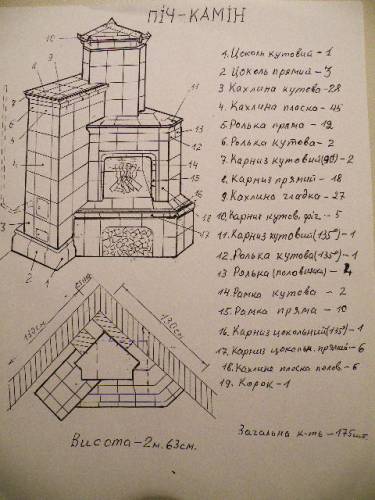 ПІЧ-КАМІН
1. Цоколь кутовий - 1
2 Цоколь прямий - 3
3 Кахлина кутова - 28
4. Кахлина плоска - 45
5. Ролька пряма - 12
6. Ролька кутова - 2
7. Карниз кутовий (90) - 2
8. Карниз прямий - 18
9. Кахлина гладка - 27
10. Карниз кутов. фіг. - 5
11. Карниз кутовий (135°) - 1
12. Ролька кутова (135°) - 1
13 Ролька (половинка) - 2
14. Рамка кутова - 2
15. Рамка пряма - 10
16. Карниз цокольний (135°) - 1
17. Карниз цокольн. прямий - 6
18. Кахлина плоска полов. - 6
19. Корок - 1
Загальна к-ть - 175шт.
10
9
8
7
6
5
4
3
2
1
11
13
12
14
15
16
18
17
стіна
130см
130см
Висота - 2м. 63см.